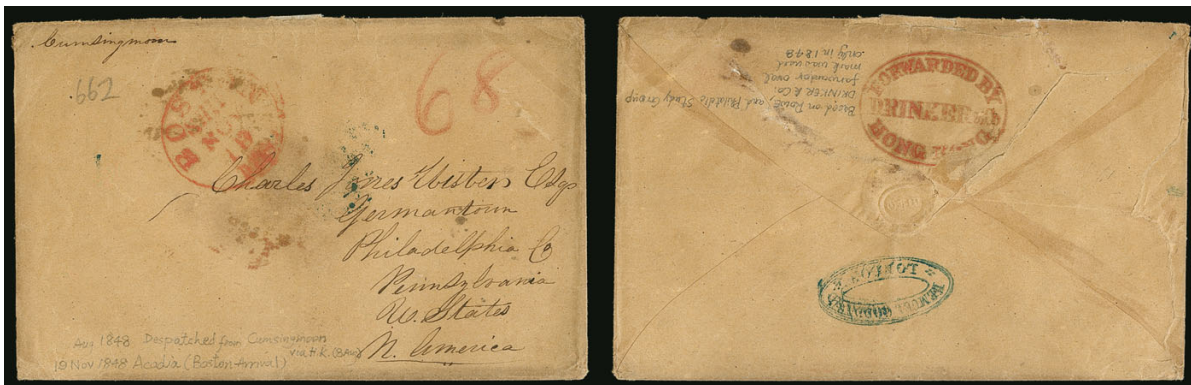 Cumsingmoon
662
BOSTON
SHIP
NOV
19
68
Charles Jones Wister Esqr
Germantown
Philadelphia Co
Pennsylvania
U. States
N. America
Aug 1848 Despatched from Cumsingmoon
via H.K. (
19 Nov 1848 Acadia (Boston Arrival)
Based on Rowe, and Philatelic Study Group
DRINKER & Co.
forwarder oval
mark was used
only in 1848
FORWARDED BY
DRINKER & Co
HONG KONG
LEMUEL GODDARD
LONDON